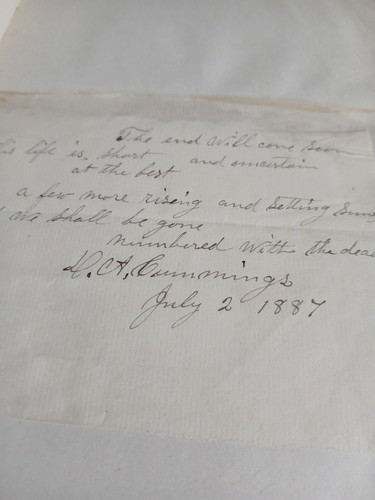 The end will come soon
his life is, short and uncertain
at the best
a few more rising and setting suns
we shall be gone
numbered with the dea
A. Cummings
July 2 1887